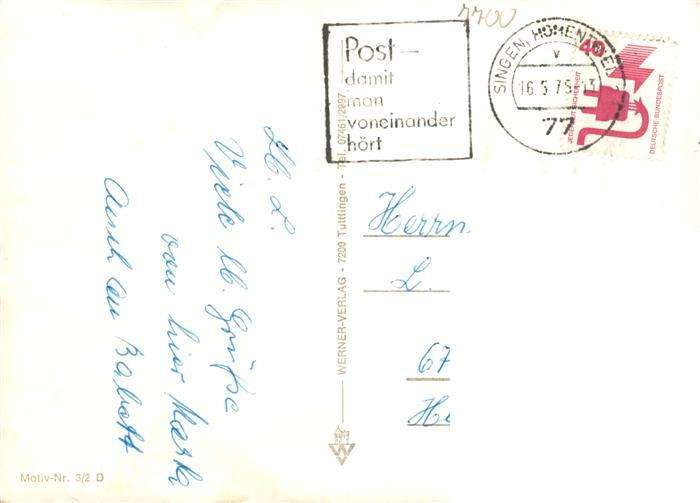 7700
Post-
damit
man
voneinander
hört
SINGEN, HOHENTWIEL
v
16.5.75-13
77
40
JEDERZEIT SICHERHEIT
DEUTSCHE BUNDESPOST
Lb. L.
Viele lb. Grüße
von hier
Auch an Babett
WERNER-VERLAG - 7200 Tuttlingen - Tel. 07461/2997
W
Herrn
L.
67
Hi
Motiv-Nr. 3/2 D